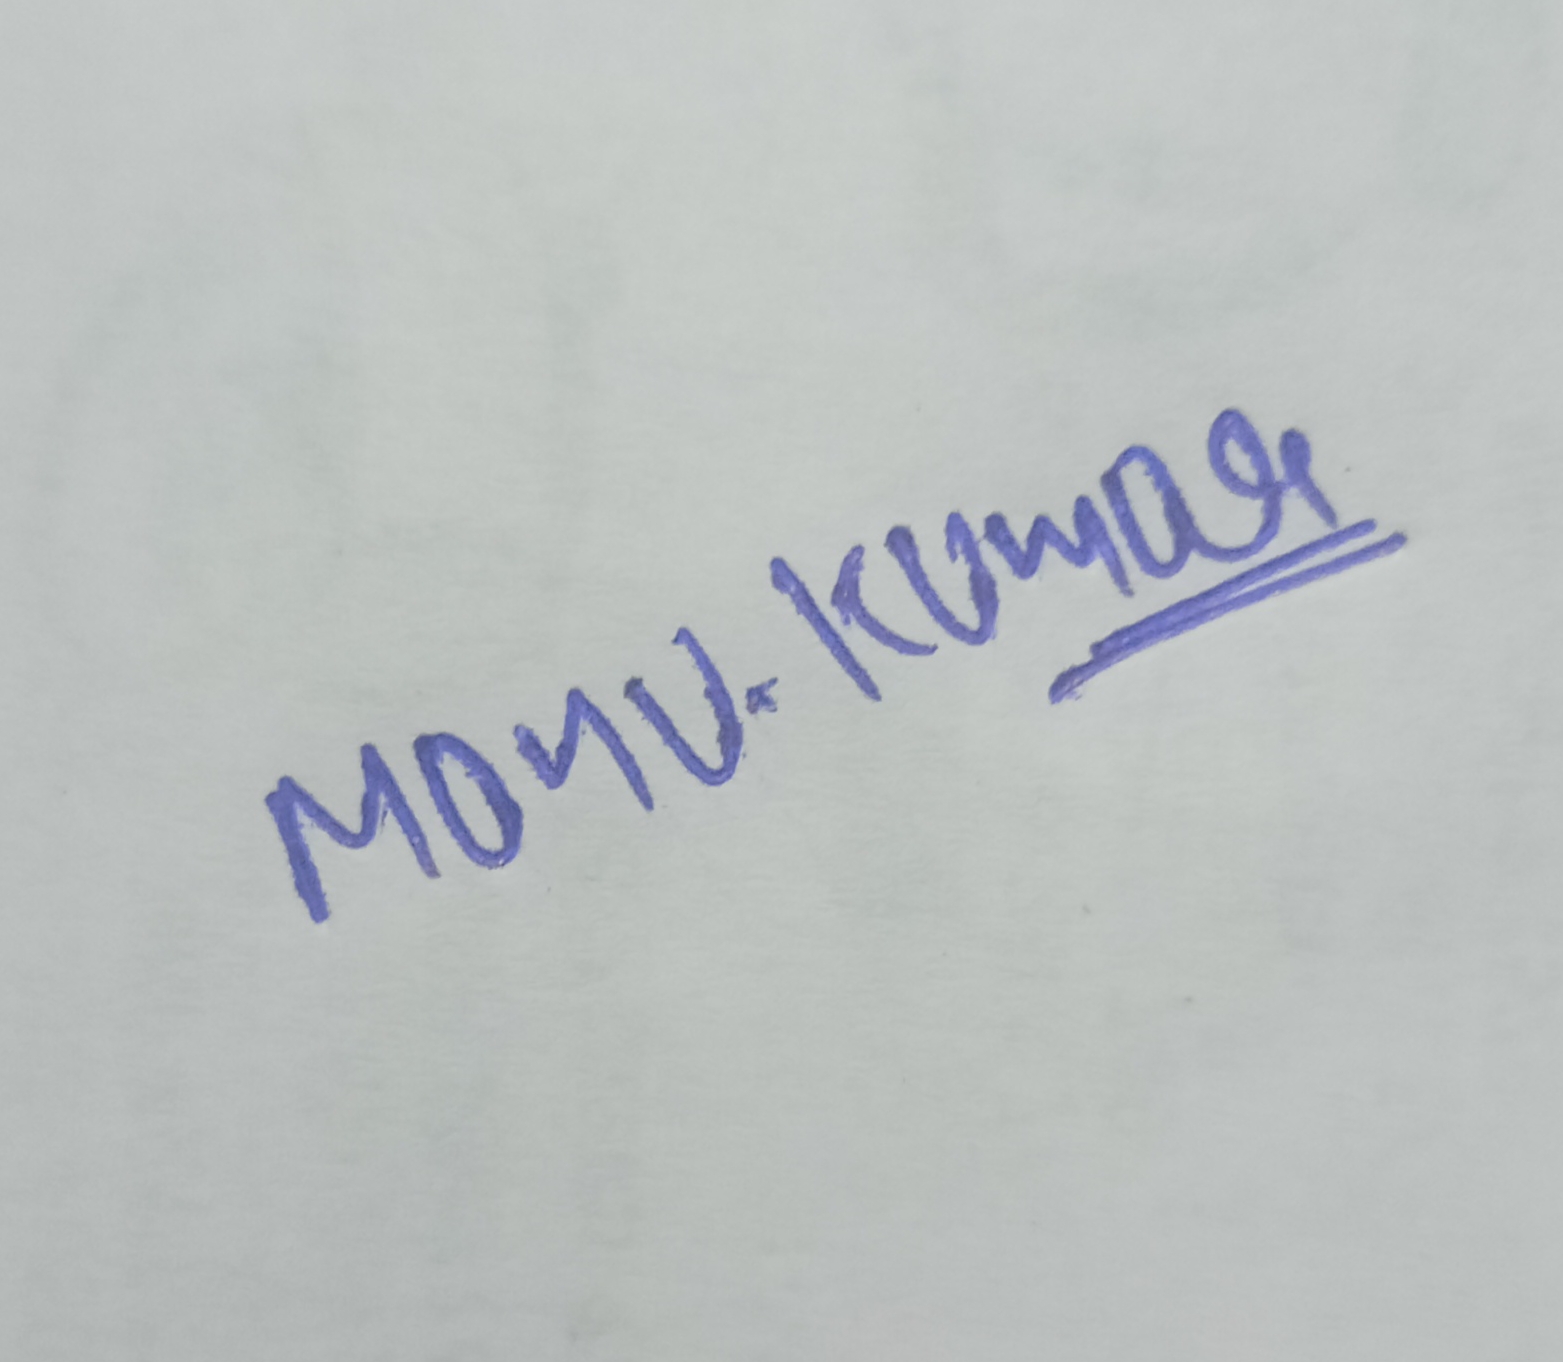 Monu. Kumar